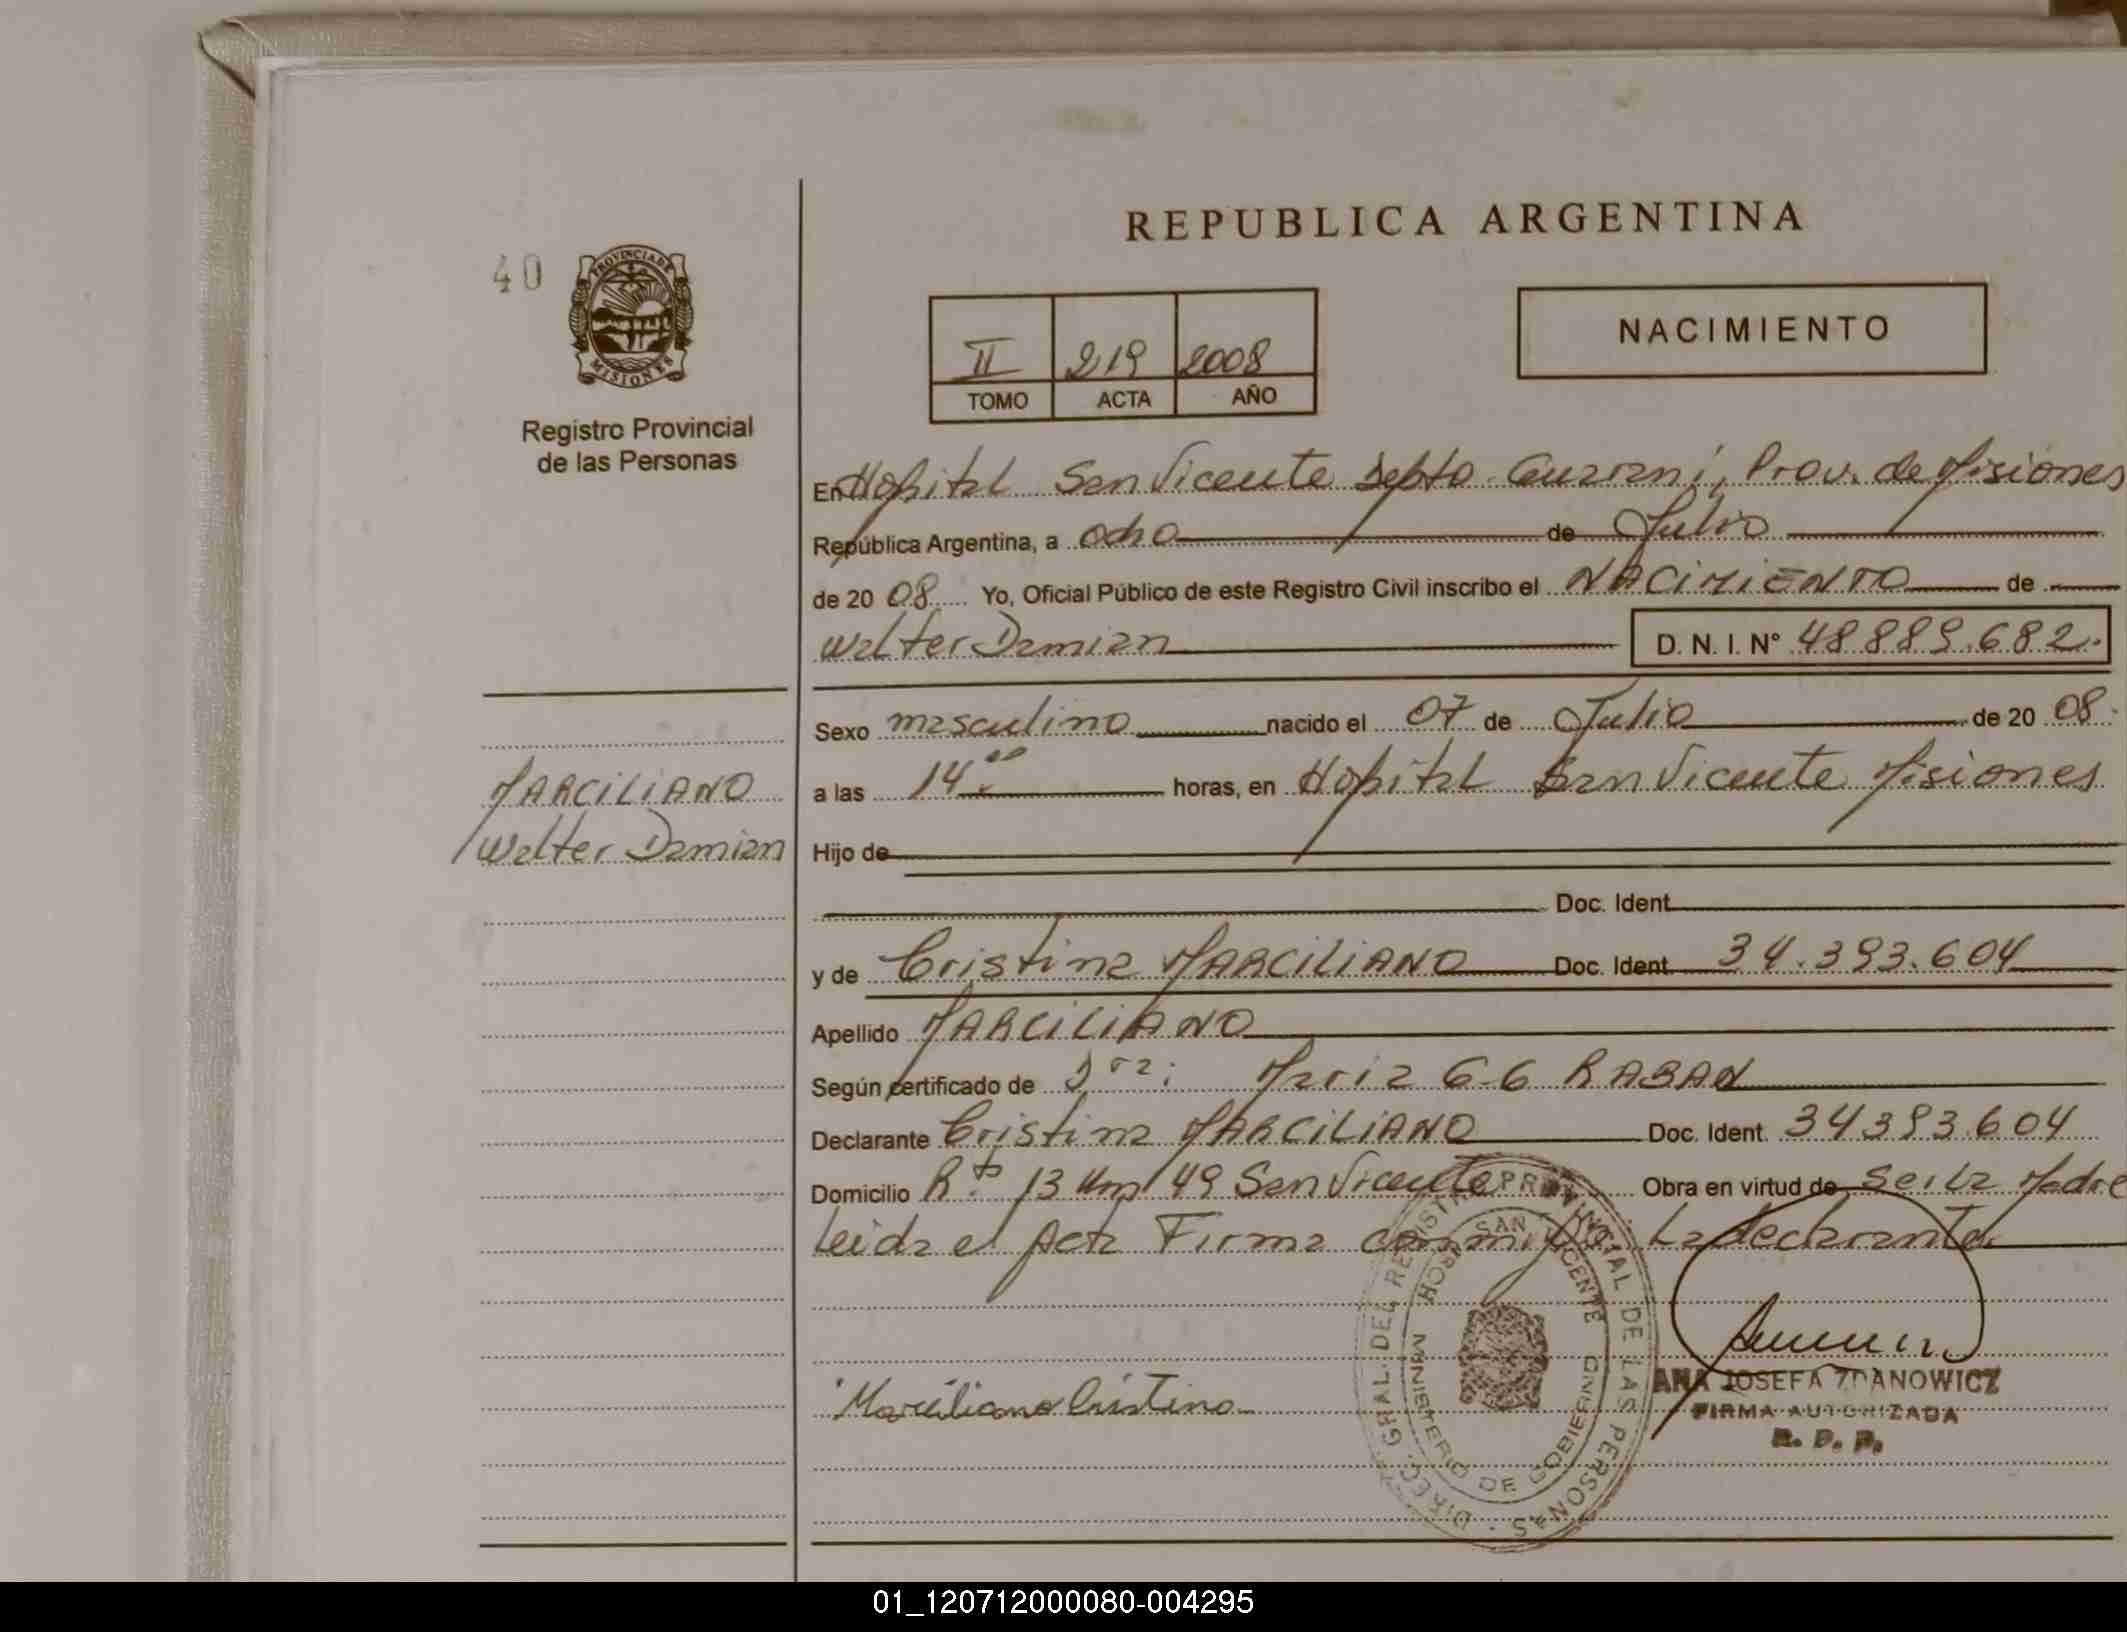 REPUBLICA ARGENTINA
40
PROVINCIA DE
MISIONES
Registro Provincial
de las Personas
II 219 2008
TOMO ACTA AÑO
NACIMIENTO
En Hopital San Vicente Depto. Guarani, Prov. de Misiones
República Argentina, a ocho de Julio
de 20 08 Yo, Oficial Público de este Registro Civil inscribo el NACIMIENTO de
Walter Damian D. N. I. Nº 48889.682.
Sexo masculino nacido el 07 de Julio de 20 08.
MARCILIANO
Walter Damian
a las 14 00 horas, en Hopital San Vicente Misiones
Hijo de
Doc. Ident
y de Cristina MARCILIANO Doc. Ident 34.393.604
Apellido MARCILIANO
Según certificado de Dra: Maria G6 RABAN
Declarante Cristina MARCILIANO Doc. Ident. 34393.604
Domicilio Rta 13 Km 149 San Vicente Obra en virtud de Ser la Madre
Leida el Acta Firma conmigo La declarante.
DIREC. GRAL. DEL REGISTRO PROVINCIAL DE LAS PERSONAS
SAN VICENTE
MINISTERIO DE GOBIERNO
Marciliano Cristina
ANA JOSEFA ZDANOWICZ
FIRMA AUTORIZADA
R. P. P.
01_120712000080-004295